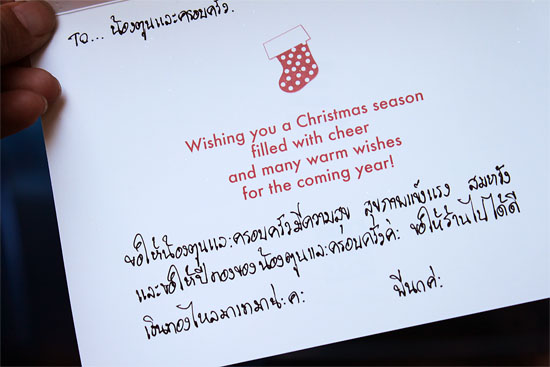 TO... น้องตุนและครอบครัว.
Wishing you a Christmas season
filled with cheer
and many warm wishes
for the coming year!
ขอให้น้องตุนและครอบครัวมีความสุข สุขภาพแข็งแรง สมหวัง
และขอให้ปีทองของน้องตุนและครอบครัวค่ะ ขอให้ร้านไปได้ดี
เงินทองไหลมาเทมาน่ะคะ